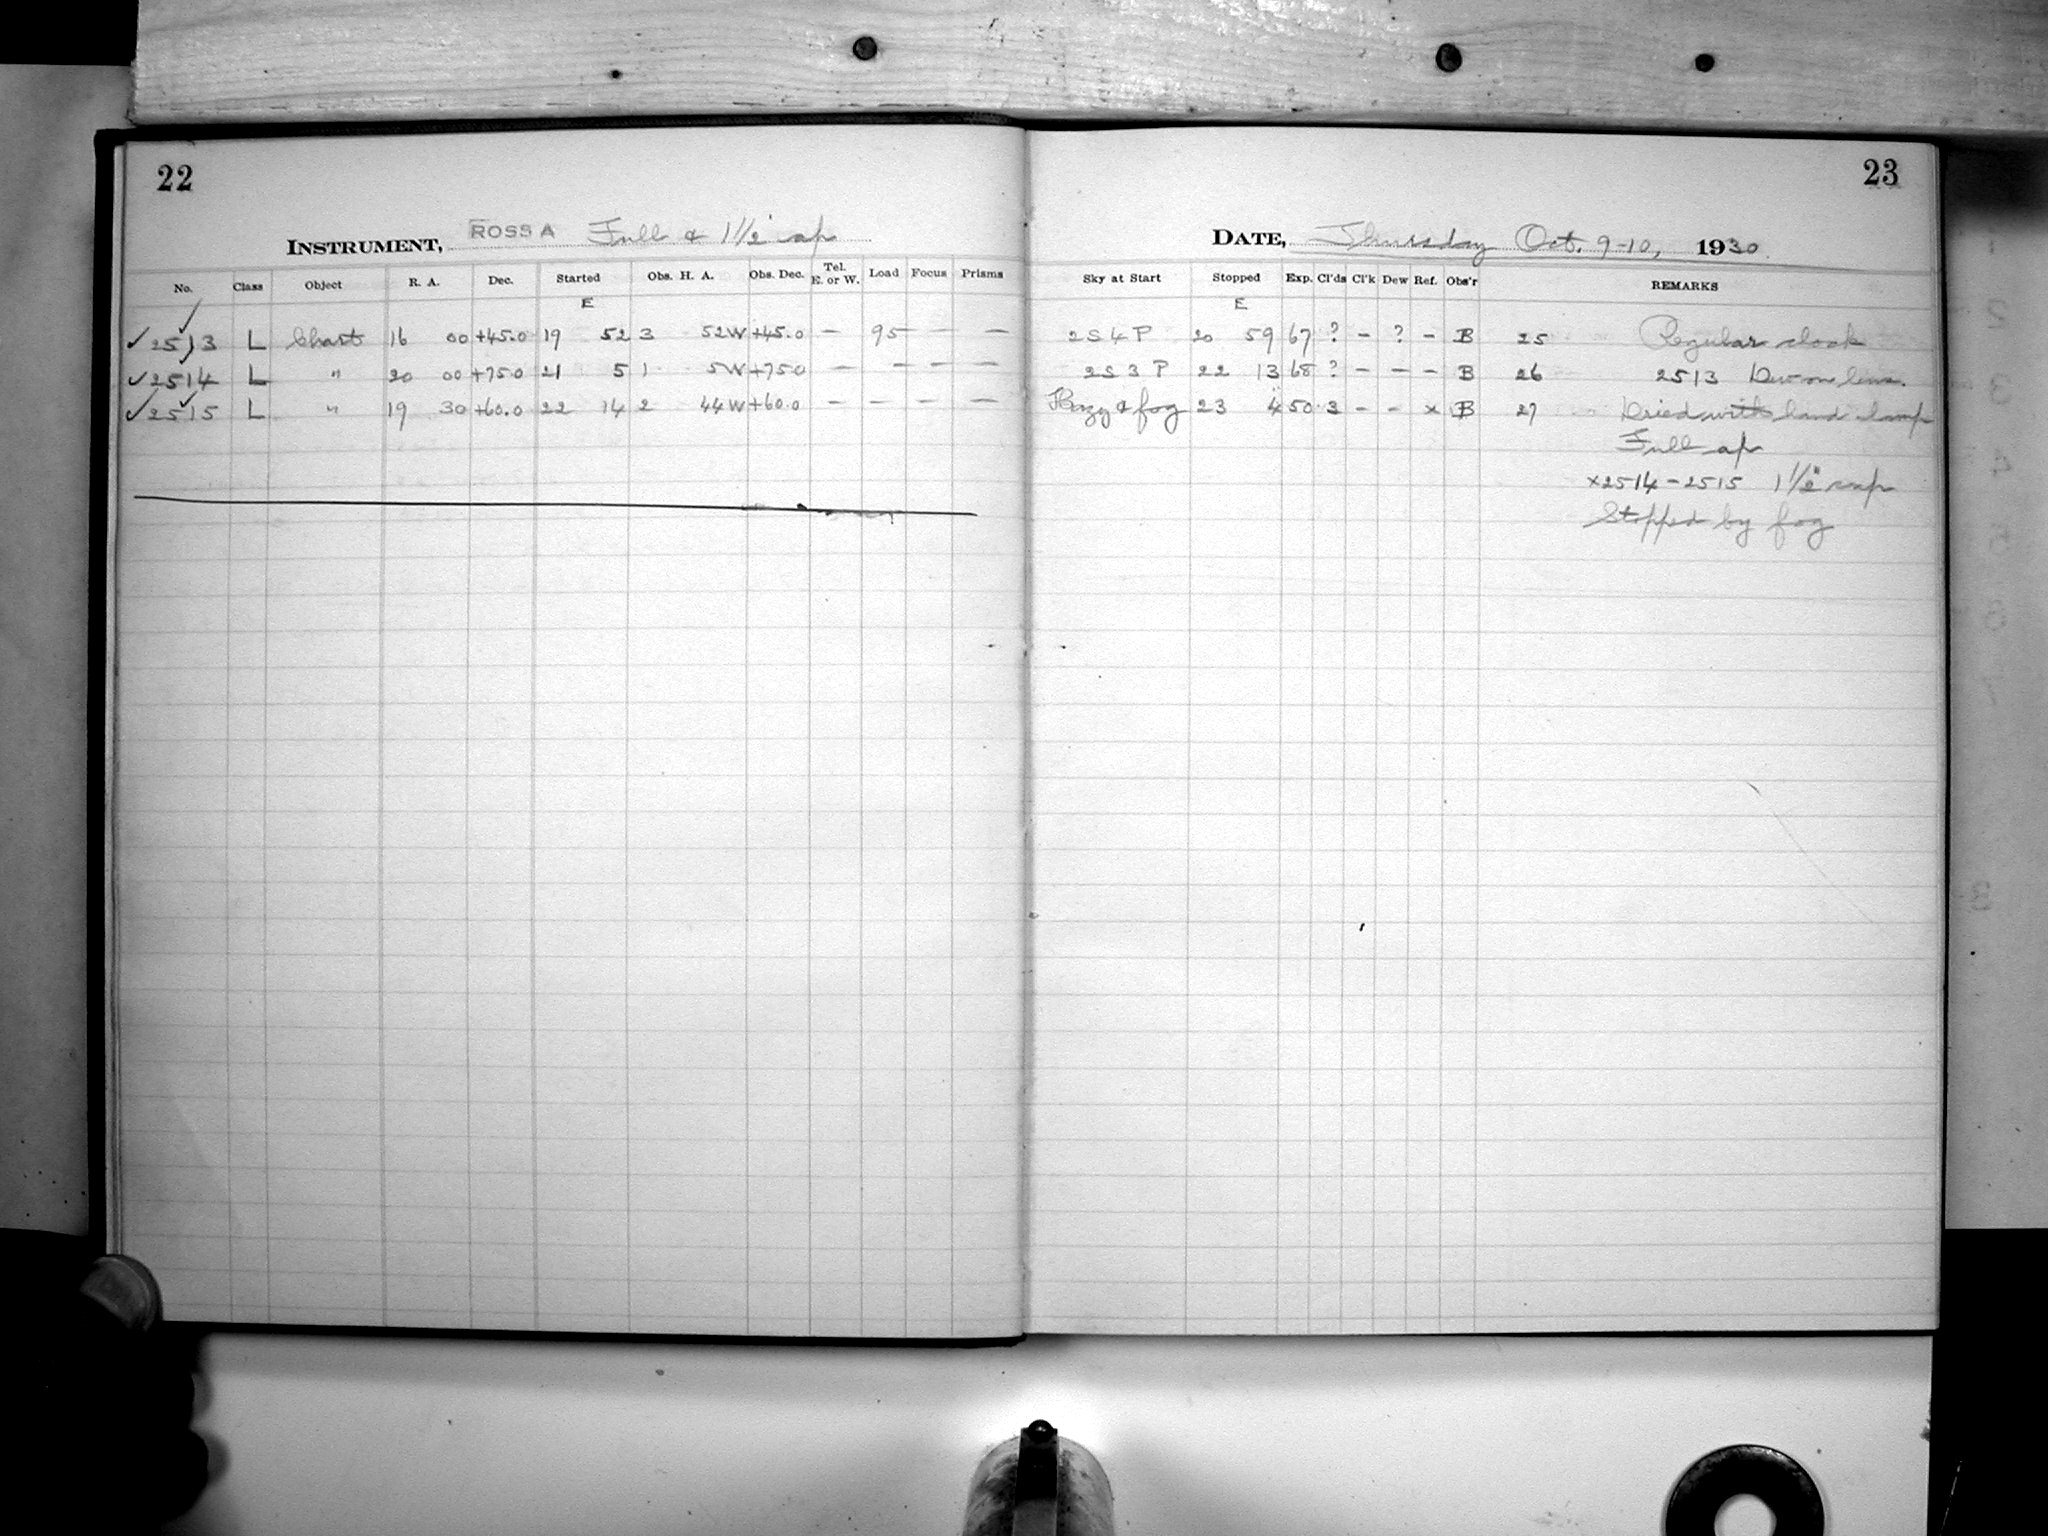 22
INSTRUMENT, ROSS A Full & 1 1/2" ap
No. Class Object R. A. Dec. Started Obs. H. A. Obs. Dec. Tel. E. or W. Load Focus Prisms
E
✓ 2513 L Chart 16 00 +45.0 19 52 3 52W +45.0 — 95 — —
✓ 2514 L " 20 00 +75.0 21 5 1 5W +75.0 — — — —
✓ 2515 L " 19 30 +60.0 22 14 2 44W +60.0 — — — —
23
DATE, Thursday Oct. 9-10, 1930
Sky at Start Stopped Exp. Cl'ds Cl'k Dew Ref. Obs'r REMARKS
E
2 S 4 P 20 59 67 ? — ? — B 25 Regular clock
2 S 3 P 22 13 68 ? — — — B 26 2513 Dew on lens.
Hazy & fog 23 4 50 3 — — x B 27 Dried with hand lamp
Full ap
x2514-2515 1 1/2" cap
Stopped by fog